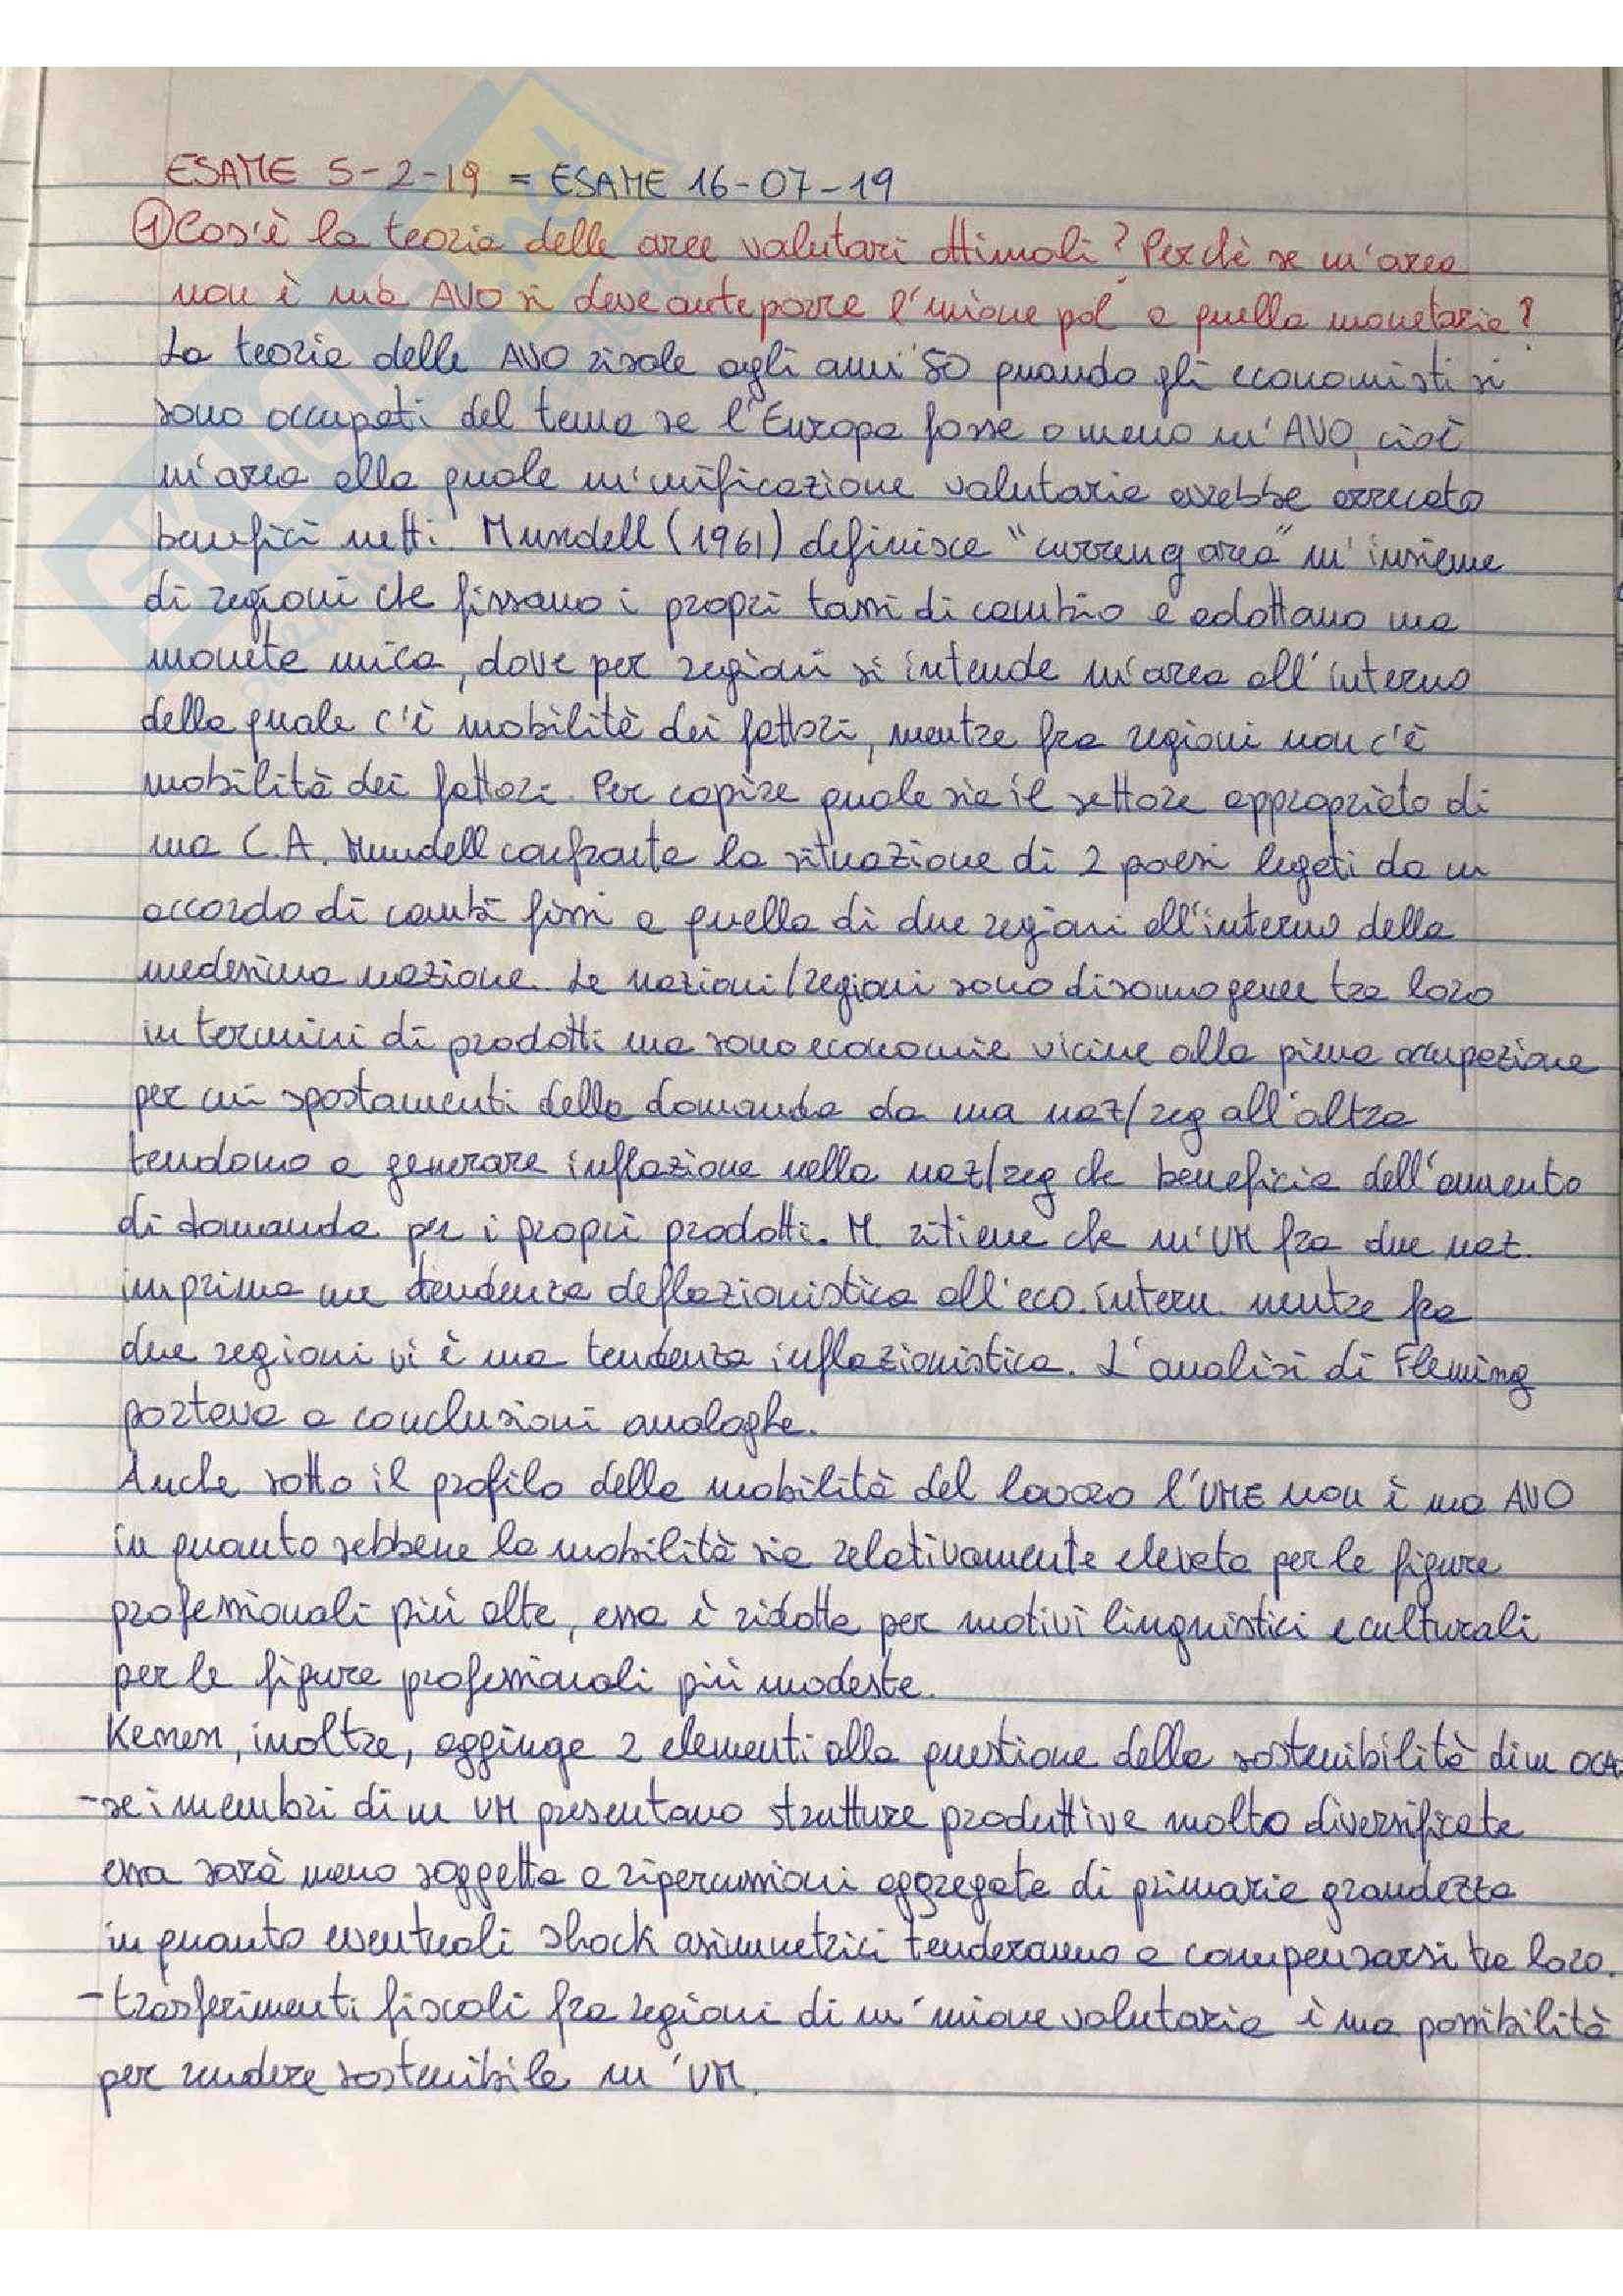 ESAME 5-2-19 = ESAME 16-07-19
① Cos'è la teoria delle aree valutari ottimali? Perchè se un'area
non è una AVO si deve anteporre l'unione pol a quella monetaria?
La teoria delle AVO risale agli anni '50 quando gli economisti si
sono occupati del tema se l'Europa fosse o meno un'AVO, cioè
un'area alla quale un'unificazione valutaria avrebbe arrecato
benefici netti. Mundell (1961) definisce "curreng area" un'insieme
di regioni che fissano i propri tassi di cambio e adottano una
moneta unica, dove per regioni si intende un'area all'interno
della quale c'è mobilità dei fattori, mentre fra regioni non c'è
mobilità dei fattori. Per capire quale sia il settore appropriato di
una C.A. Mundell confronta la situazione di 2 paesi legati da un
accordo di cambi fissi a quella di due regioni all'interno della
medesima nazione. Le nazioni/regioni sono disomogenee tra loro
in termini di prodotti ma sono economie vicine alla piena occupazione
per cui spostamenti della domanda da una naz/reg all'altra
tendono a generare inflazione nella naz/reg che beneficia dell'aumento
di domanda per i propri prodotti. M. ritiene che un'UM fra due naz.
imprima una tendenza deflazionistica all'eco. intern. mentre fra
due regioni vi è una tendenza inflazionistica. L'analisi di Fleming
portava a conclusioni analoghe.
Anche sotto il profilo della mobilità del lavoro l'UME non è una AVO
in quanto sebbene la mobilità sia relativamente elevata per le figure
professionali più alte, essa è ridotta per motivi linguistici e culturali
per le figure professionali più modeste.
Kenen, inoltre, aggiunge 2 elementi alla questione della sostenibilità di un OCA:
- se i membri di un UM presentano strutture produttive molto diversificate
essa sarà meno soggetta a ripercussioni aggregate di primaria grandezza
in quanto eventuali shock asimmetrici tenderanno a compensarsi tra loro.
- trasferimenti fiscali fra regioni di un'unione valutaria è una possibilità
per rendere sostenibile un'UM.